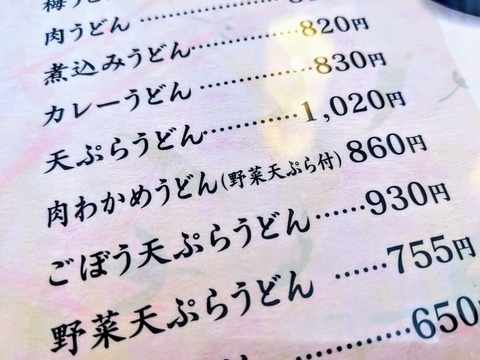 梅うど
肉うどん…………
煮込みうどん…………820円
カレーうどん…………830円
天ぷらうどん…………1,020円
肉わかめうどん(野菜天ぷら付) 860円
ごぼう天ぷらうどん……930円
野菜天ぷらうどん ……755円
…………650円